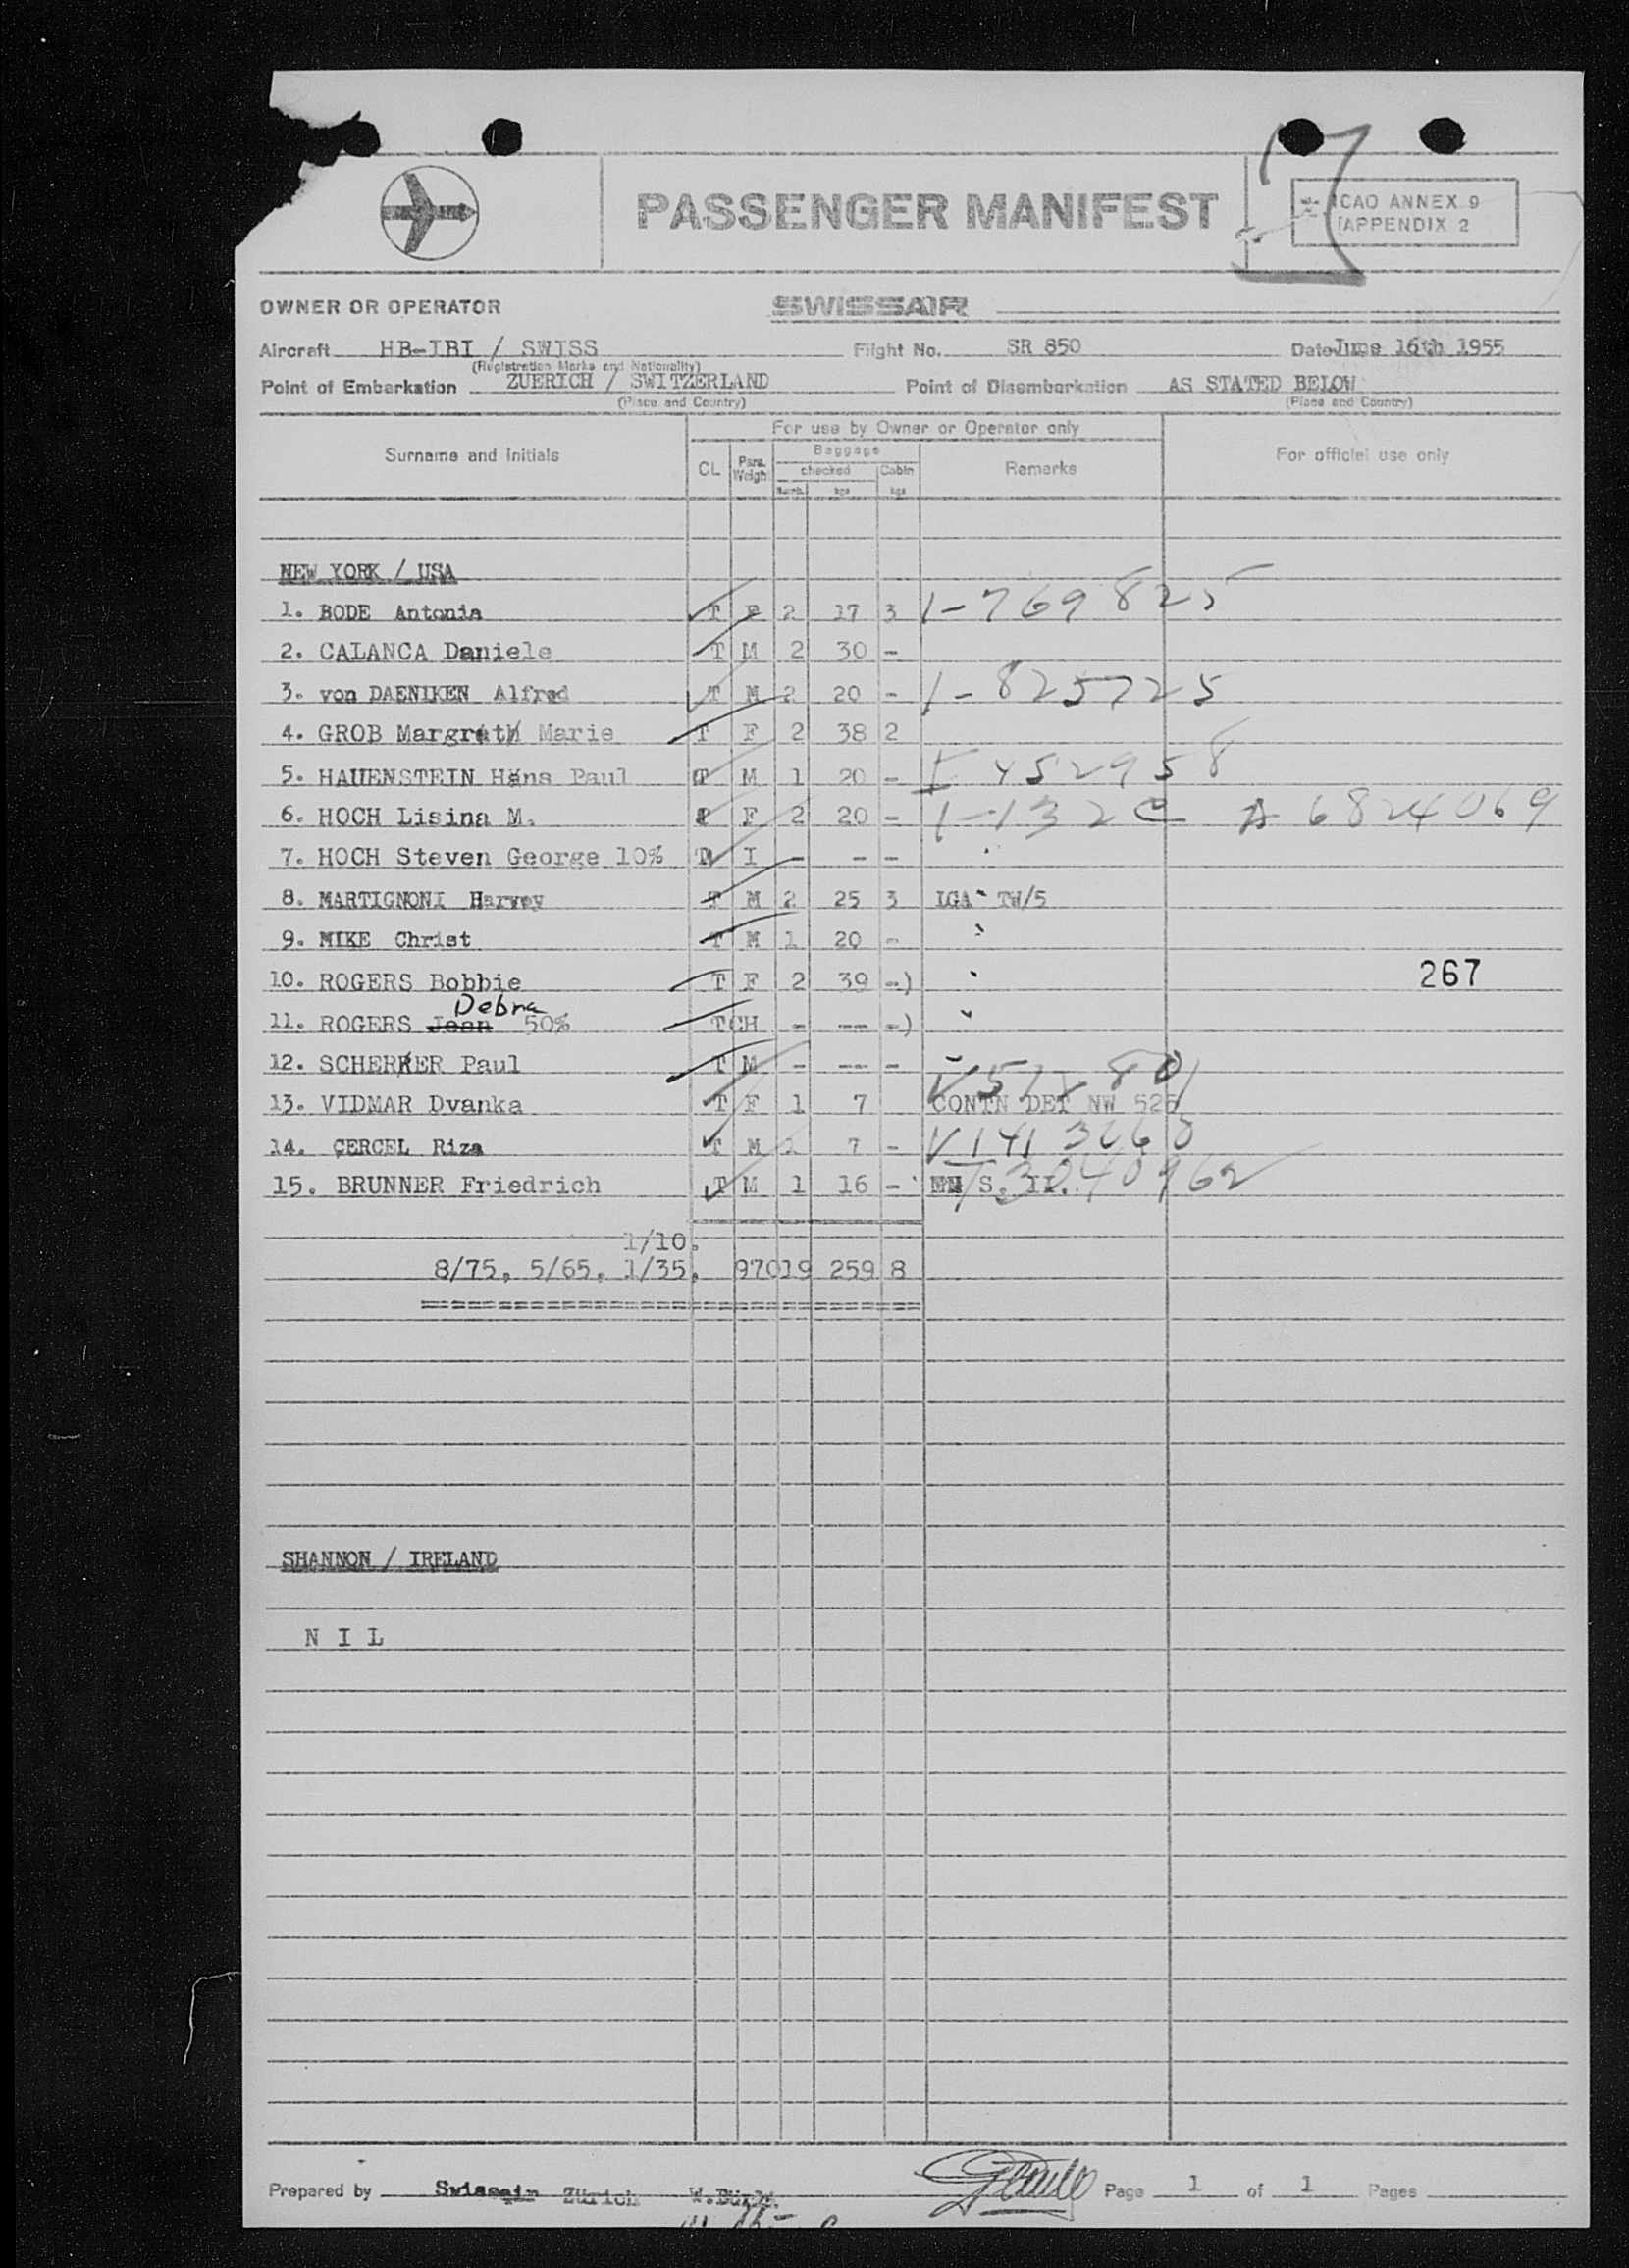 PASSENGER MANIFEST
ICAO ANNEX 9
APPENDIX 2
OWNER OR OPERATOR SWISSAIR
Aircraft HB-IBI / SWISS Flight No. SR 850 Date June 16th 1955
(Registration Marks and Nationality)
Point of Embarkation ZUERICH / SWITZERLAND Point of Disembarkation AS STATED BELOW
(Place and Country) (Place and Country)
For use by Owner or Operator only
Surname and Initials CL Pass. Weight Baggage checked Numb. kgs Cabin kgs Remarks For official use only
NEW YORK / USA
1. BODE Antonia T F 2 17 3 1-769825
2. CALANCA Daniele T M 2 30 -
3. von DAENIKEN Alfred T M 2 20 - 1-825725
4. GROB Margrith Marie T F 2 38 2
5. HAUENSTEIN Hans Paul T M 1 20 - I 452958
6. HOCH Lisina M. T F 2 20 - 1-132 C A 6824069
7. HOCH Steven George 10% T I - - -
8. MARTIGNONI Harvey T M 2 25 3 LGA TW/5
9. MIKE Christ T M 1 20 -
10. ROGERS Bobbie T F 2 39 -) 267
Debra
11. ROGERS Jean 50% T CH - -- -)
12. SCHERRER Paul T M - -- -
13. VIDMAR Dvanka T F 1 7 CONTN DET NW 525
14. ÇERCEL Riza T M 1 7 -
15. BRUNNER Friedrich T M 1 16 - S. II.
1/10.
8/75, 5/65, 1/35, 970 19 259 8
SHANNON / IRELAND
N I L
Prepared by Swissair Zürich Page 1 of 1 Pages